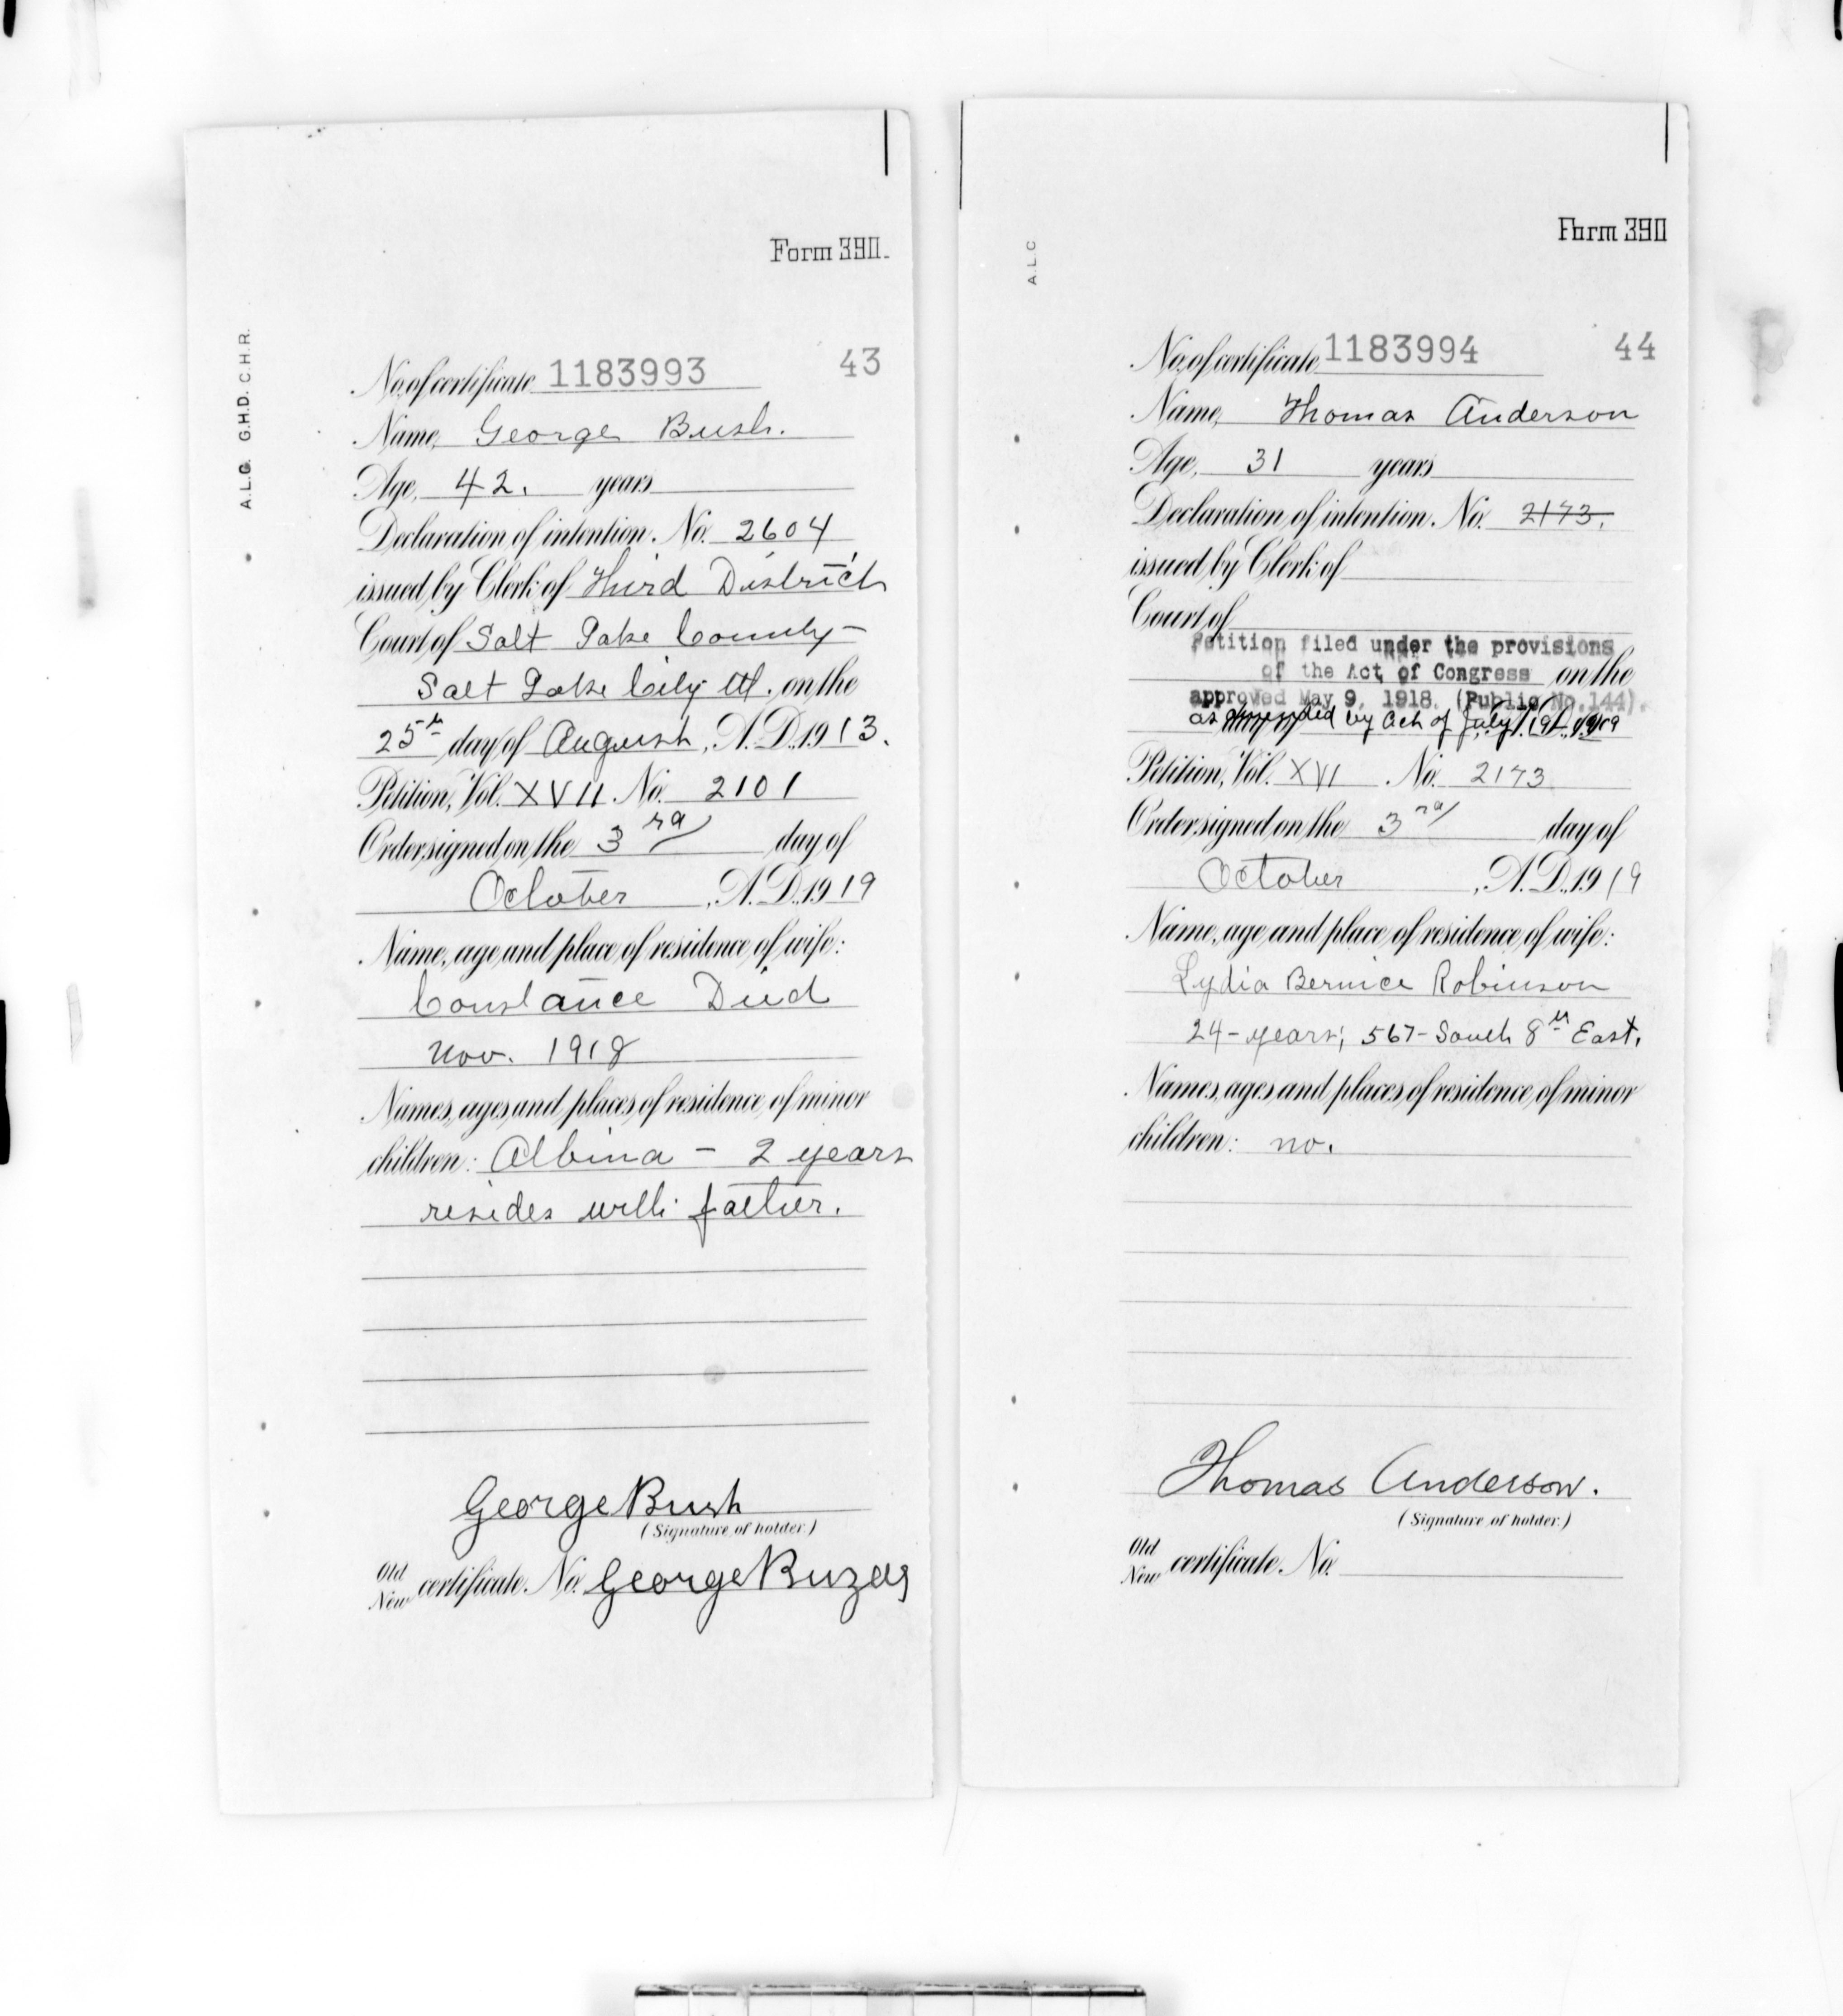 Form 390.
A.L.C. G.H.D. C.H.R.
43
No. of certificate 1183993
Name, George Bush.
Age, 42. years
Declaration of intention. No. 2604
issued by Clerk of Third District
Court of Salt Lake County—
Salt Lake City Ut. on the
25th day of August, A.D. 1913.
Petition, Vol. XVII. No. 2101
Order signed on the 3rd day of
October, A.D. 1919
Name, age and place of residence of wife:
Constance Died
Nov. 1918
Names, ages and places of residence of minor
children: Albina - 2 years
resides with father.
George Bush
(Signature of holder.)
Old
New certificate. No. George
Form 390
A.L.C
44
No. of certificate 1183994
Name, Thomas Anderson
Age, 31 years
Declaration of intention. No. 2173.
issued by Clerk of
Court of
Petition filed under the provisions
of the Act of Congress on the
approved May 9, 1918. (Public No. 144).
as amended by Act of July 19th, 1919
Petition, Vol. XVI. No. 2173
Order signed on the 3rd day of
October, A.D. 1919
Name, age and place of residence of wife:
Lydia Bernice Robinson
24-years; 567-South 8th East.
Names, ages and places of residence of minor
children: no.
Thomas Anderson.
(Signature of holder.)
Old
New certificate. No.